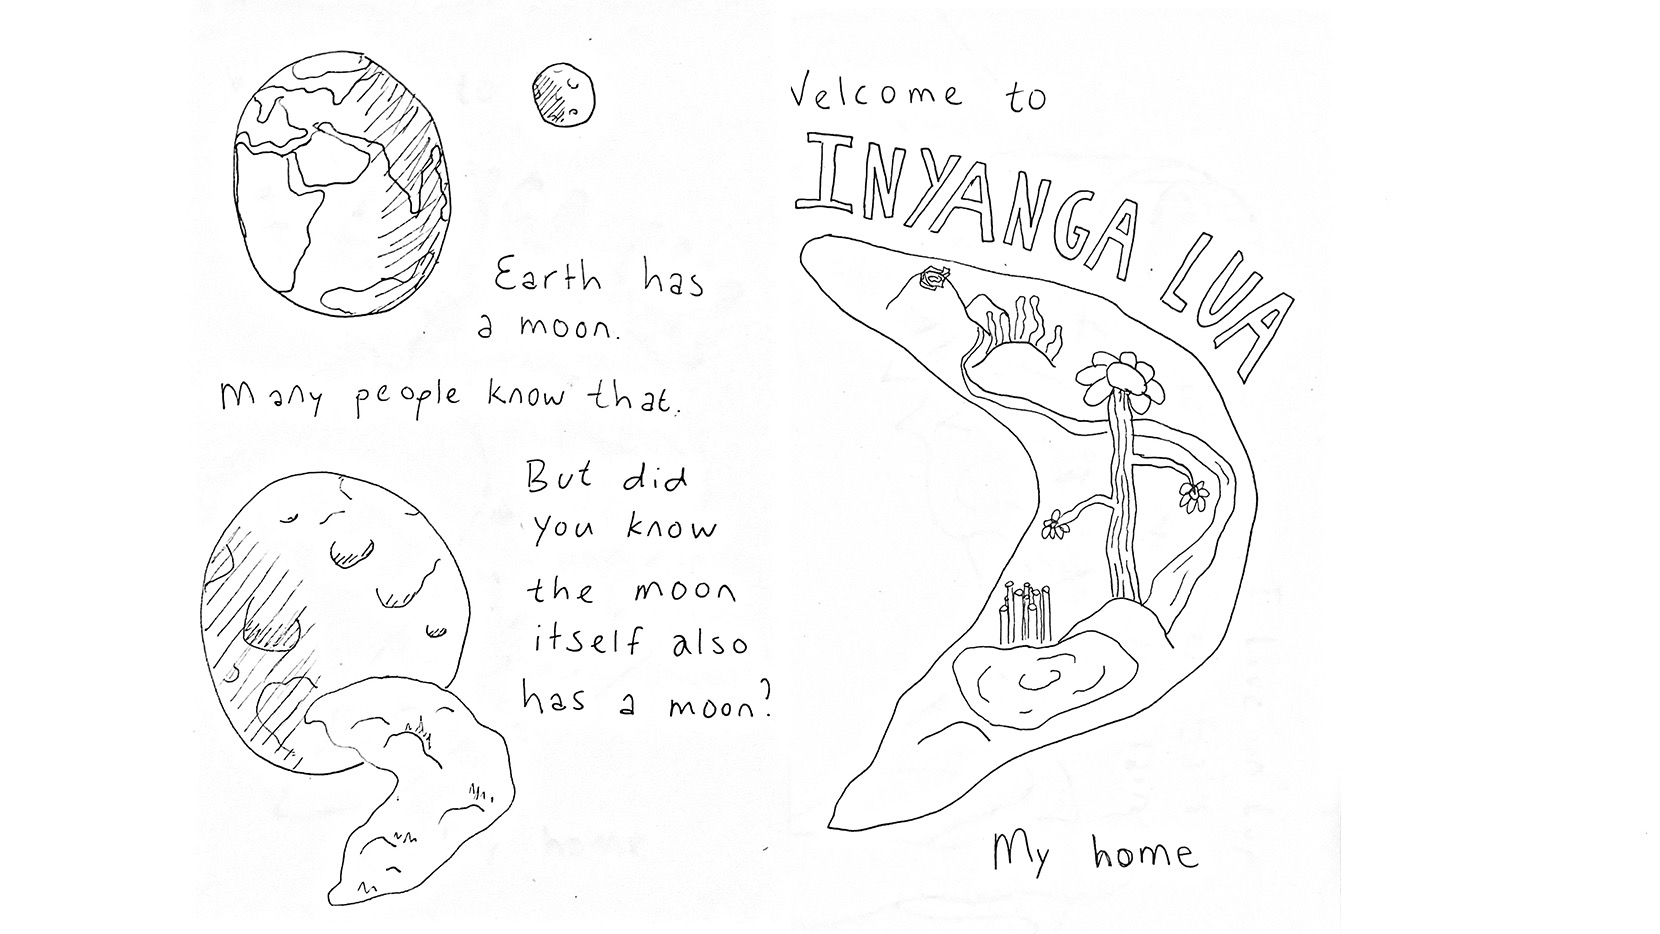 Earth has
a moon.
Many people know that.
But did
you know
the moon
itself also
has a moon?
Welcome to
INYANGA LUA
My home